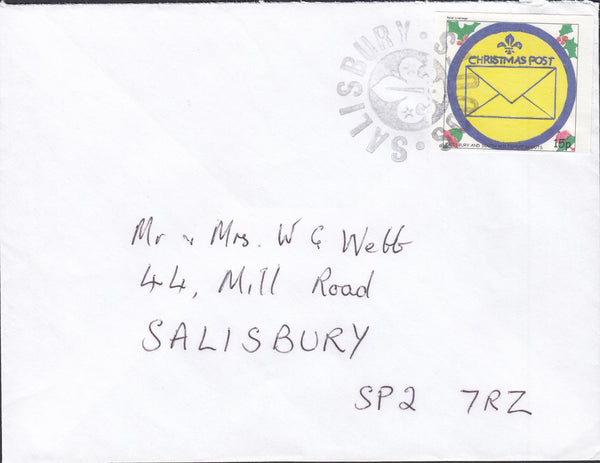 SALISBURY · SCOUTS ·
CHRISTMAS POST
SALISBURY AND SOUTH WILTSHIRE SCOUTS
15p
Mr & Mrs. W G Webb
44, Mill Road
SALISBURY
SP2 7RZ